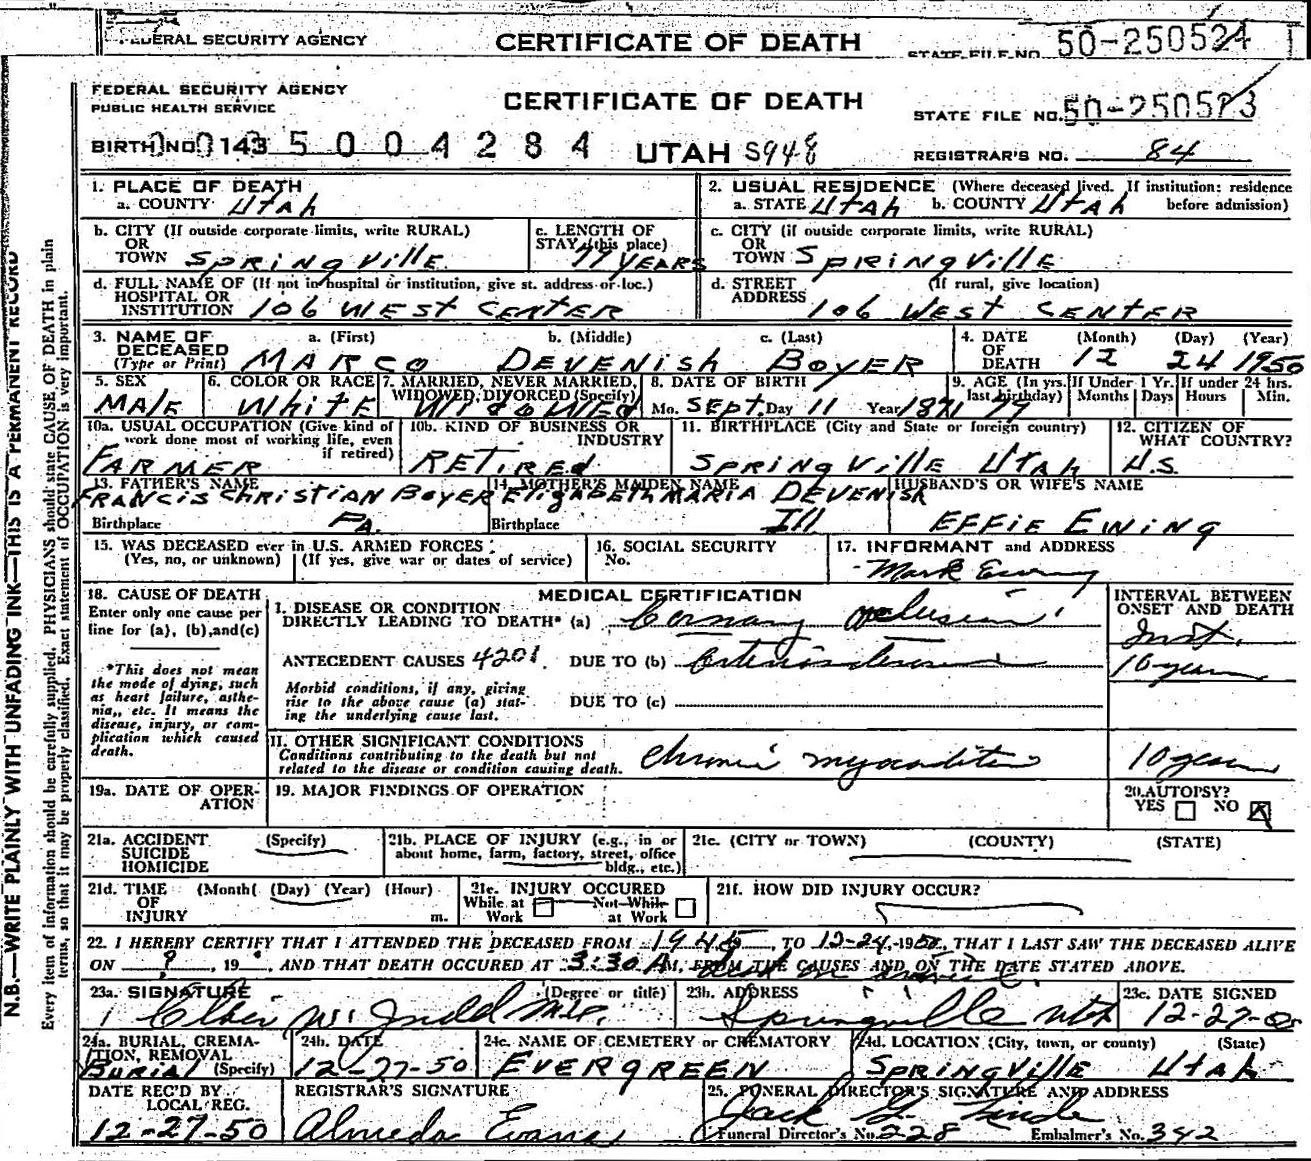 FEDERAL SECURITY AGENCY CERTIFICATE OF DEATH STATE FILE NO. 50-250524
FEDERAL SECURITY AGENCY
PUBLIC HEALTH SERVICE
CERTIFICATE OF DEATH
STATE FILE NO. 50-250523
BIRTH NO. 143 5004284 UTAH S948
REGISTRAR'S NO. 84
N.B.—WRITE PLAINLY WITH UNFADING INK—THIS IS A PERMANENT RECORD
Every item of information should be carefully supplied. PHYSICIANS should state CAUSE OF DEATH in plain
terms, so that it may be properly classified. Exact statement of OCCUPATION is very important.
1. PLACE OF DEATH
a. COUNTY Utah
2. USUAL RESIDENCE (Where deceased lived. If institution: residence
a. STATE Utah b. COUNTY Utah before admission)
b. CITY (If outside corporate limits, write RURAL)
OR
TOWN Springville
c. LENGTH OF
STAY (this place)
77 YEARS
c. CITY (if outside corporate limits, write RURAL)
OR
TOWN Springville
d. FULL NAME OF (If not in hospital or institution, give st. address or loc.)
HOSPITAL OR
INSTITUTION 106 West Center
d. STREET (If rural, give location)
ADDRESS 106 West Center
3. NAME OF DECEASED (Type or Print)
a. (First) b. (Middle) c. (Last)
Marco Devenish Boyer
4. DATE OF DEATH (Month) (Day) (Year)
12 24 1950
5. SEX
Male
6. COLOR OR RACE
White
7. MARRIED, NEVER MARRIED,
WIDOWED, DIVORCED (Specify)
Widowed
8. DATE OF BIRTH
Mo. Sept. Day 11 Year 1871
9. AGE (In yrs. last birthday) 79
If Under 1 Yr. Months Days
If under 24 hrs. Hours Min.
10a. USUAL OCCUPATION (Give kind of
work done most of working life, even
if retired)
Farmer
10b. KIND OF BUSINESS OR
INDUSTRY
Retired
11. BIRTHPLACE (City and State or foreign country)
Springville Utah
12. CITIZEN OF
WHAT COUNTRY?
U.S.
13. FATHER'S NAME
Francis Christian Boyer
Birthplace Pa.
14. MOTHER'S MAIDEN NAME
Elizabeth Maria Devenish
Birthplace Ill
HUSBAND'S OR WIFE'S NAME
Effie Ewing
15. WAS DECEASED ever in U.S. ARMED FORCES
(Yes, no, or unknown) (If yes, give war or dates of service)
16. SOCIAL SECURITY
No.
17. INFORMANT and ADDRESS
Mark Ewing
18. CAUSE OF DEATH
Enter only one cause per
line for (a), (b), and (c)
*This does not mean
the mode of dying, such
as heart failure, asthe-
nia, etc. It means the
disease, injury, or com-
plication which caused
death.
MEDICAL CERTIFICATION
I. DISEASE OR CONDITION
DIRECTLY LEADING TO DEATH* (a) Coronary occlusion
ANTECEDENT CAUSES 4201 DUE TO (b) Arteriosclerosis
Morbid conditions, if any, giving
rise to the above cause (a) stat-
ing the underlying cause last.
DUE TO (c)
INTERVAL BETWEEN
ONSET AND DEATH
Inst.
10 years
II. OTHER SIGNIFICANT CONDITIONS
Conditions contributing to the death but not
related to the disease or condition causing death.
Chronic myocarditis
10 years
19a. DATE OF OPER-
ATION
19. MAJOR FINDINGS OF OPERATION
20. AUTOPSY?
YES NO
21a. ACCIDENT (Specify)
SUICIDE
HOMICIDE
21b. PLACE OF INJURY (e.g., in or
about home, farm, factory, street, office
bldg., etc.)
21c. (CITY or TOWN) (COUNTY) (STATE)
21d. TIME (Month) (Day) (Year) (Hour)
OF
INJURY m.
21e. INJURY OCCURED
While at Work Not While at Work
21f. HOW DID INJURY OCCUR?
22. I HEREBY CERTIFY THAT I ATTENDED THE DECEASED FROM 1945, TO 12-24, 1950, THAT I LAST SAW THE DECEASED ALIVE
ON ?, 19, AND THAT DEATH OCCURED AT 3:30 A M, FROM THE CAUSES AND ON THE DATE STATED ABOVE.
23a. SIGNATURE (Degree or title)
23b. ADDRESS
Springville Utah
23c. DATE SIGNED
12-27-50
24a. BURIAL, CREMA-
TION, REMOVAL
(Specify)
Burial
24b. DATE
12-27-50
24c. NAME OF CEMETERY or CREMATORY
Evergreen
24d. LOCATION (City, town, or county) (State)
Springville Utah
DATE REC'D BY
LOCAL REG.
12-27-50
REGISTRAR'S SIGNATURE
Almeda Evans
25. FUNERAL DIRECTOR'S SIGNATURE AND ADDRESS
Funeral Director's No. 228 Embalmer's No. 342